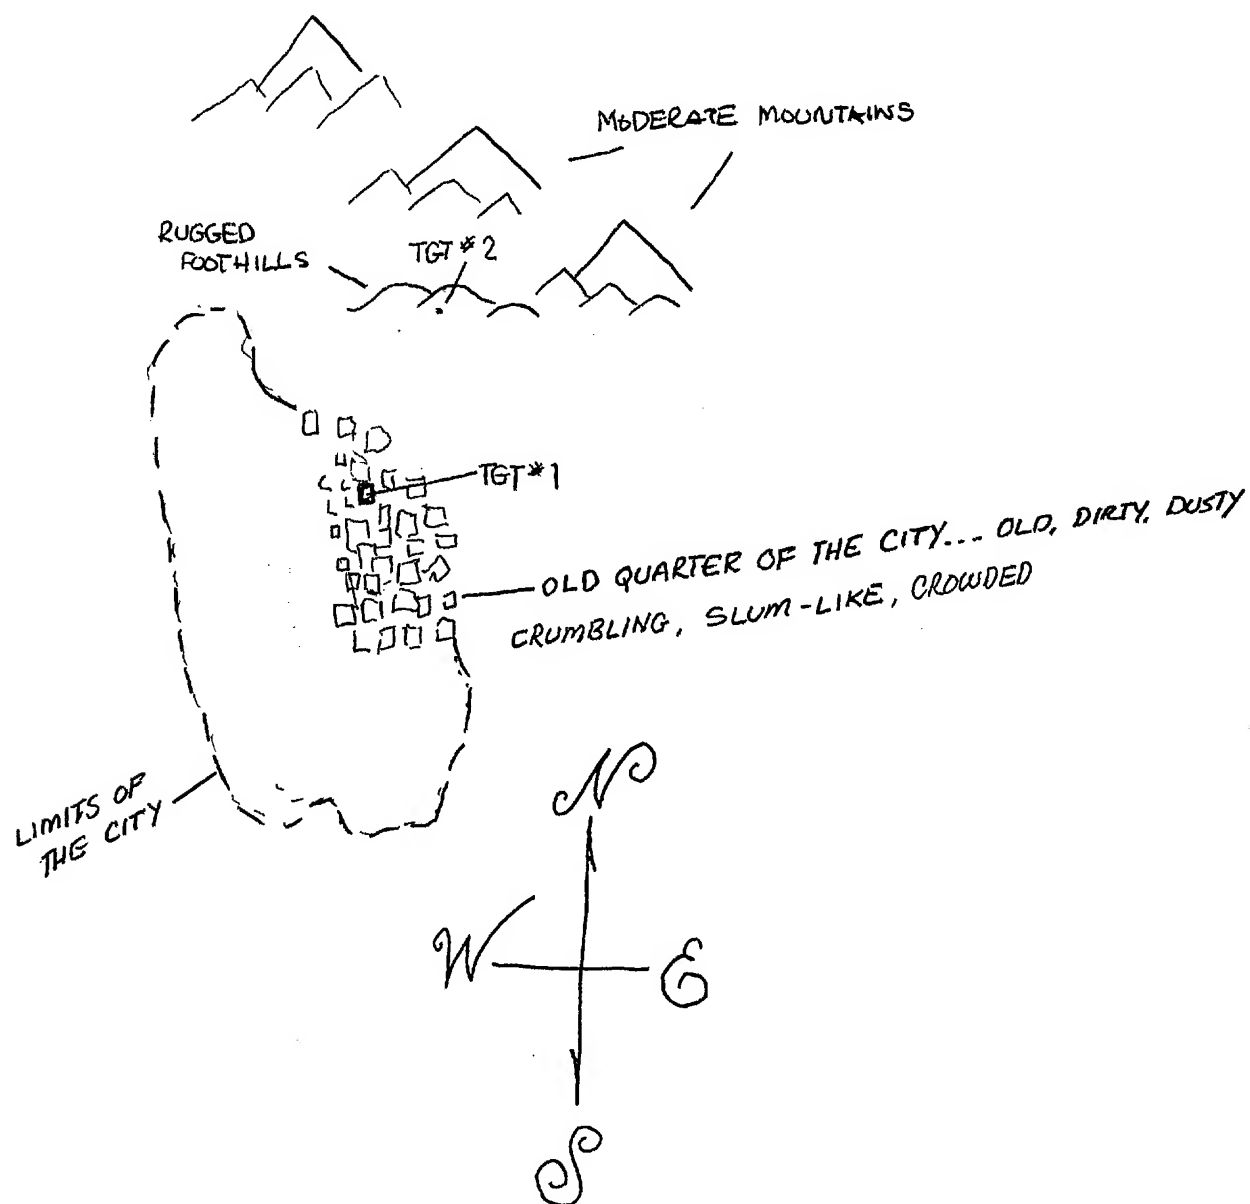 MODERATE MOUNTAINS
RUGGED
FOOTHILLS
TGT #2
TGT #1
OLD QUARTER OF THE CITY... OLD, DIRTY, DUSTY
CRUMBLING, SLUM-LIKE, CROWDED
LIMITS OF
THE CITY
N
W
E
S